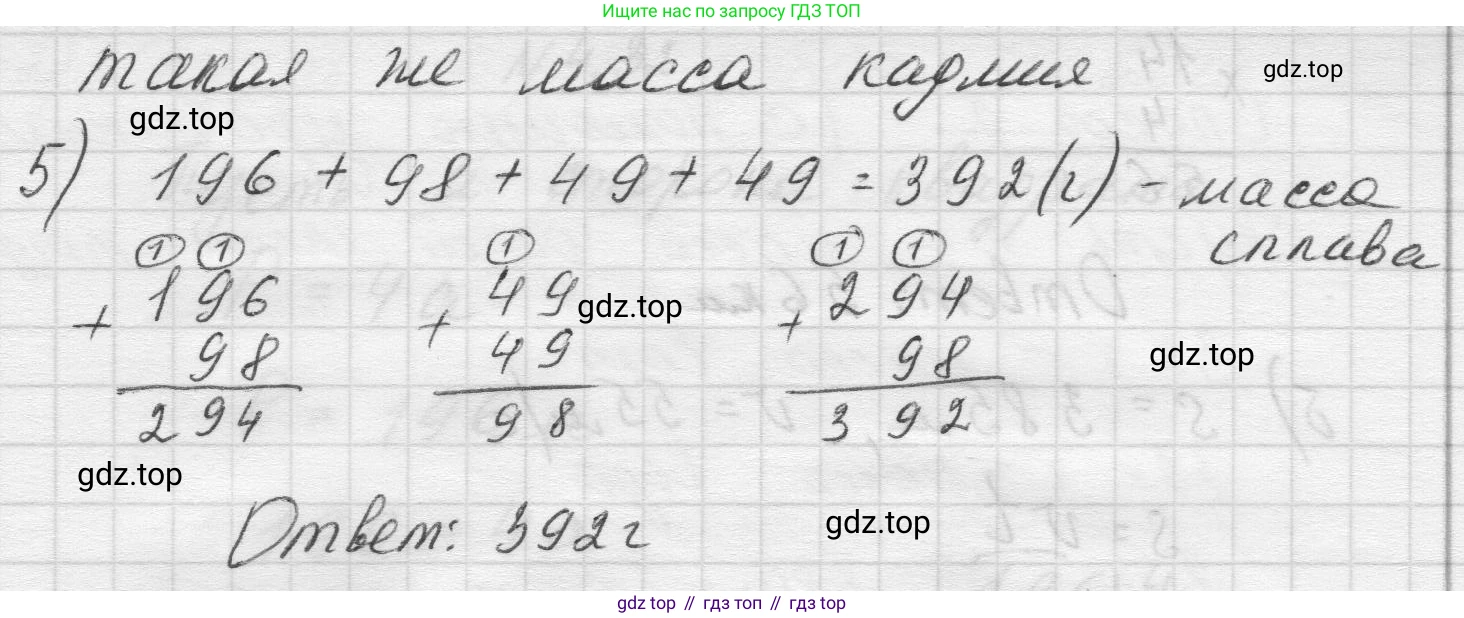 Ищите нас по запросу ГДЗ ТОП
такая же масса кадмия
gdz.top
gdz.top
5) 196 + 98 + 49 + 49 = 392 (г) - масса
сплава
1 1
196
+ 98
294
1
49
+ 49
98
1 1
294
+ 98
392
gdz.top
gdz.top
gdz.top
Ответ: 392 г
gdz.top
gdz top // гдз топ // гдз top